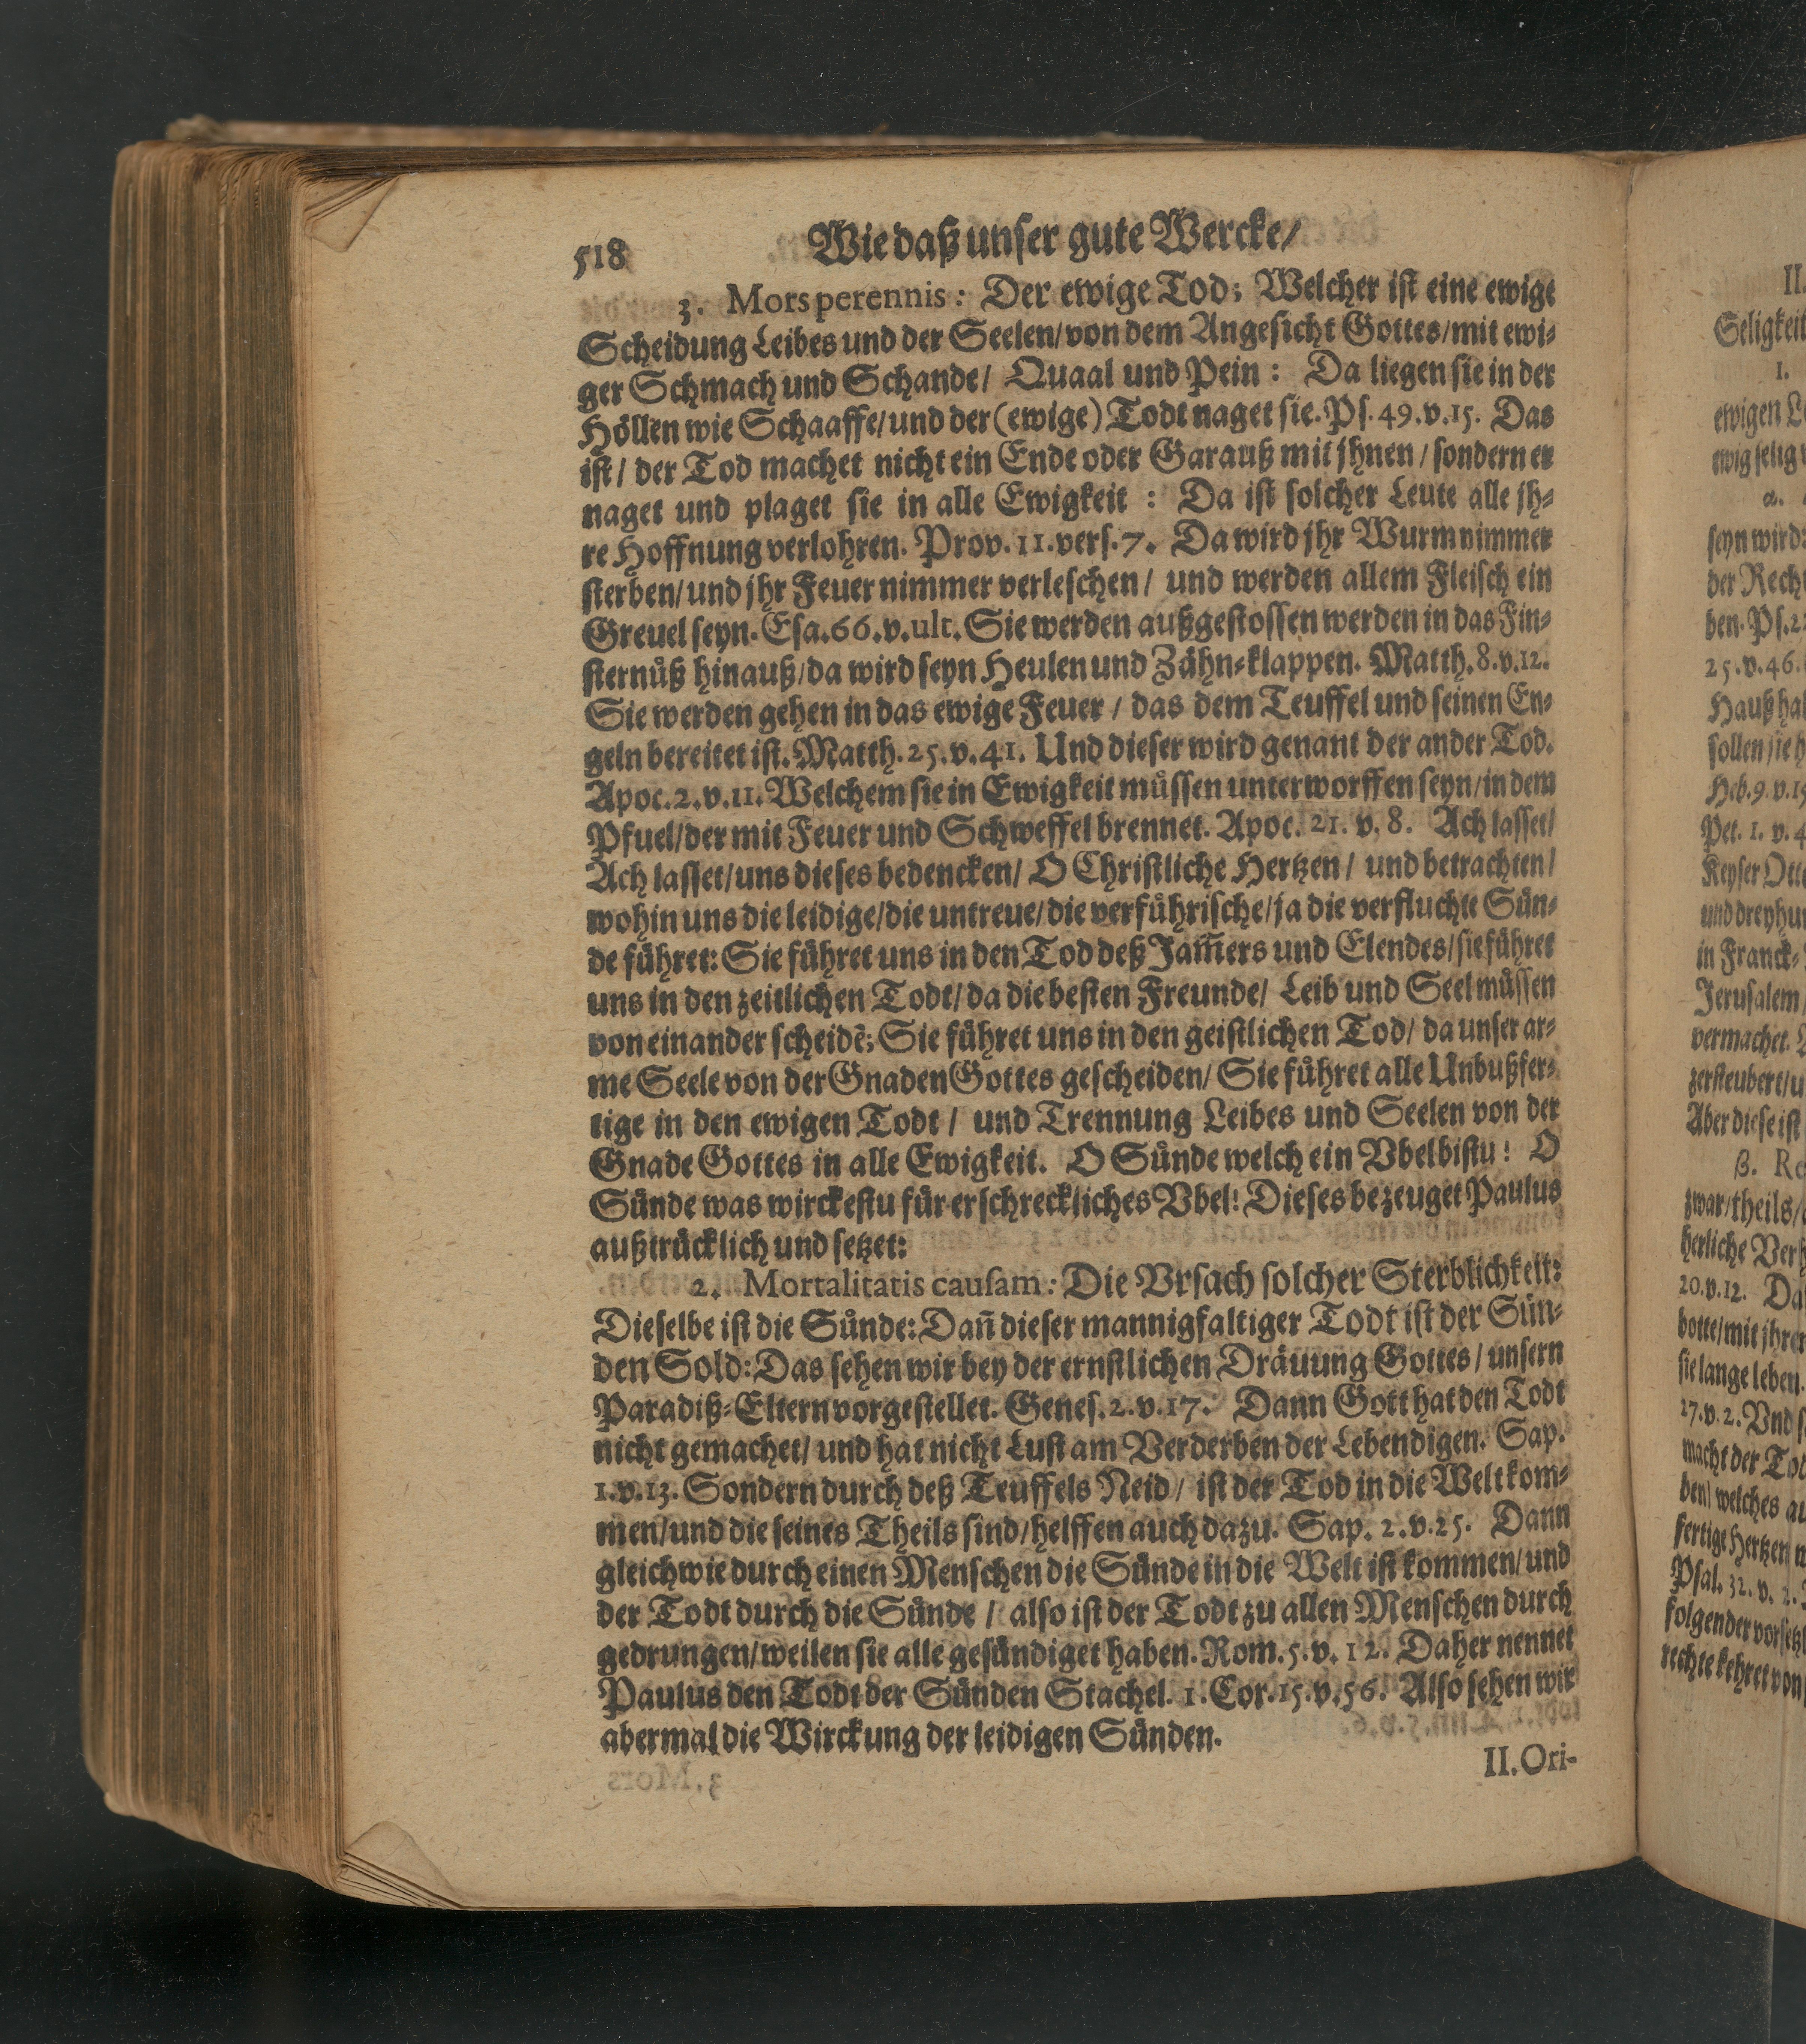 518 Wie daß unser gute Wercke/
3. Mors perennis: Der ewige Tod; Welcher ist eine ewige
Scheidung Leibes und der Seelen/ von dem Angesicht Gottes/ mit ewi-
ger Schmach und Schande/ Quaal und Pein: Da liegen sie in der
Höllen wie Schaaffe/ und der (ewige) Todt naget sie. Ps. 49. v. 15. Das
ist/ der Tod machet nicht ein Ende oder Garauß mit jhnen/ sondern er
naget und plaget sie in alle Ewigkeit: Da ist solcher Leute alle jh-
re Hoffnung verlohren. Prov. 11. vers. 7. Da wird jhr Wurm nimmer
sterben/ und jhr Feuer nimmer verleschen/ und werden allem Fleisch ein
Greuel seyn. Esa. 66. v. ult. Sie werden außgestossen werden in das Fin-
sternüß hinauß/ da wird seyn Heulen und Zähn-klappen. Matth. 8. v. 12.
Sie werden gehen in das ewige Feuer/ das dem Teuffel und seinen En-
geln bereitet ist. Matth. 25. v. 41. Und dieser wird genant der ander Tod.
Apoc. 2. v. 11. Welchem sie in Ewigkeit müssen unterworffen seyn/ in dem
Pfuel/ der mit Feuer und Schweffel brennet. Apoc. 21. v. 8. Ach lasset/
Ach lasset/ uns dieses bedencken/ O Christliche Hertzen/ und betrachten/
wohin uns die leidige/ die untreue/ die verführische/ ja die verfluchte Sün-
de führet: Sie führet uns in den Tod deß Jam̃ers und Elendes/ sie führet
uns in den zeitlichen Todt/ da die besten Freunde/ Leib und Seel müssen
von einander scheidẽ; Sie führet uns in den geistlichen Tod/ da unser ar-
me Seele von der Gnaden Gottes gescheiden/ Sie führet alle Unbußfer-
tige in den ewigen Todt/ und Trennung Leibes und Seelen von der
Gnade Gottes in alle Ewigkeit. O Sünde welch ein Vbel bistu! O
Sünde was wirckestu für erschreckliches Vbel! Dieses bezeuget Paulus
außtrücklich und setzet:
2. Mortalitatis causam: Die Vrsach solcher Sterblichkeit:
Dieselbe ist die Sünde: Dañ dieser mannigfaltiger Todt ist der Sün-
den Sold: Das sehen wir bey der ernstlichen Dräuung Gottes/ unsern
Paradiß-Eltern vorgestellet. Genes. 2. v. 17. Dann Gott hat den Todt
nicht gemachet/ und hat nicht Lust am Verderben der Lebendigen. Sap.
1. v. 13. Sondern durch deß Teuffels Neid/ ist der Tod in die Welt kom-
men/ und die seines Theils sind/ helffen auch dazu. Sap. 2. v. 25. Dann
gleich wie durch einen Menschen die Sünde in die Welt ist kommen/ und
der Todt durch die Sünde/ also ist der Todt zu allen Menschen durch
gedrungen/ weilen sie alle gesündiget haben. Rom. 5. v. 12. Daher nennet
Paulus den Todt der Sünden Stachel. 1. Cor. 15. v. 56. Also sehen wir
abermal die Wirckung der leidigen Sünden.
II. Ori-
II.
Seligkeit
1.
ewigen
ewig selig
α.
seyn wird:
der
ben. Ps.
25. v. 46.
Hauß
sollen sie
Heb. 9. v.
Pet. 1. v. 4
Keyser
und
in Franck-
Jerusalem/
vermachet.
zersteubert/
Aber diese ist
β.
zwar/ theils/
herliche
20. v. 12.
botte/ mit
sie lange leben.
27. v. 2. Vnd
macht der
ben/ welches
fertige Hertzen
Psal. 32. v. 2.
folgender
rechte kehret von